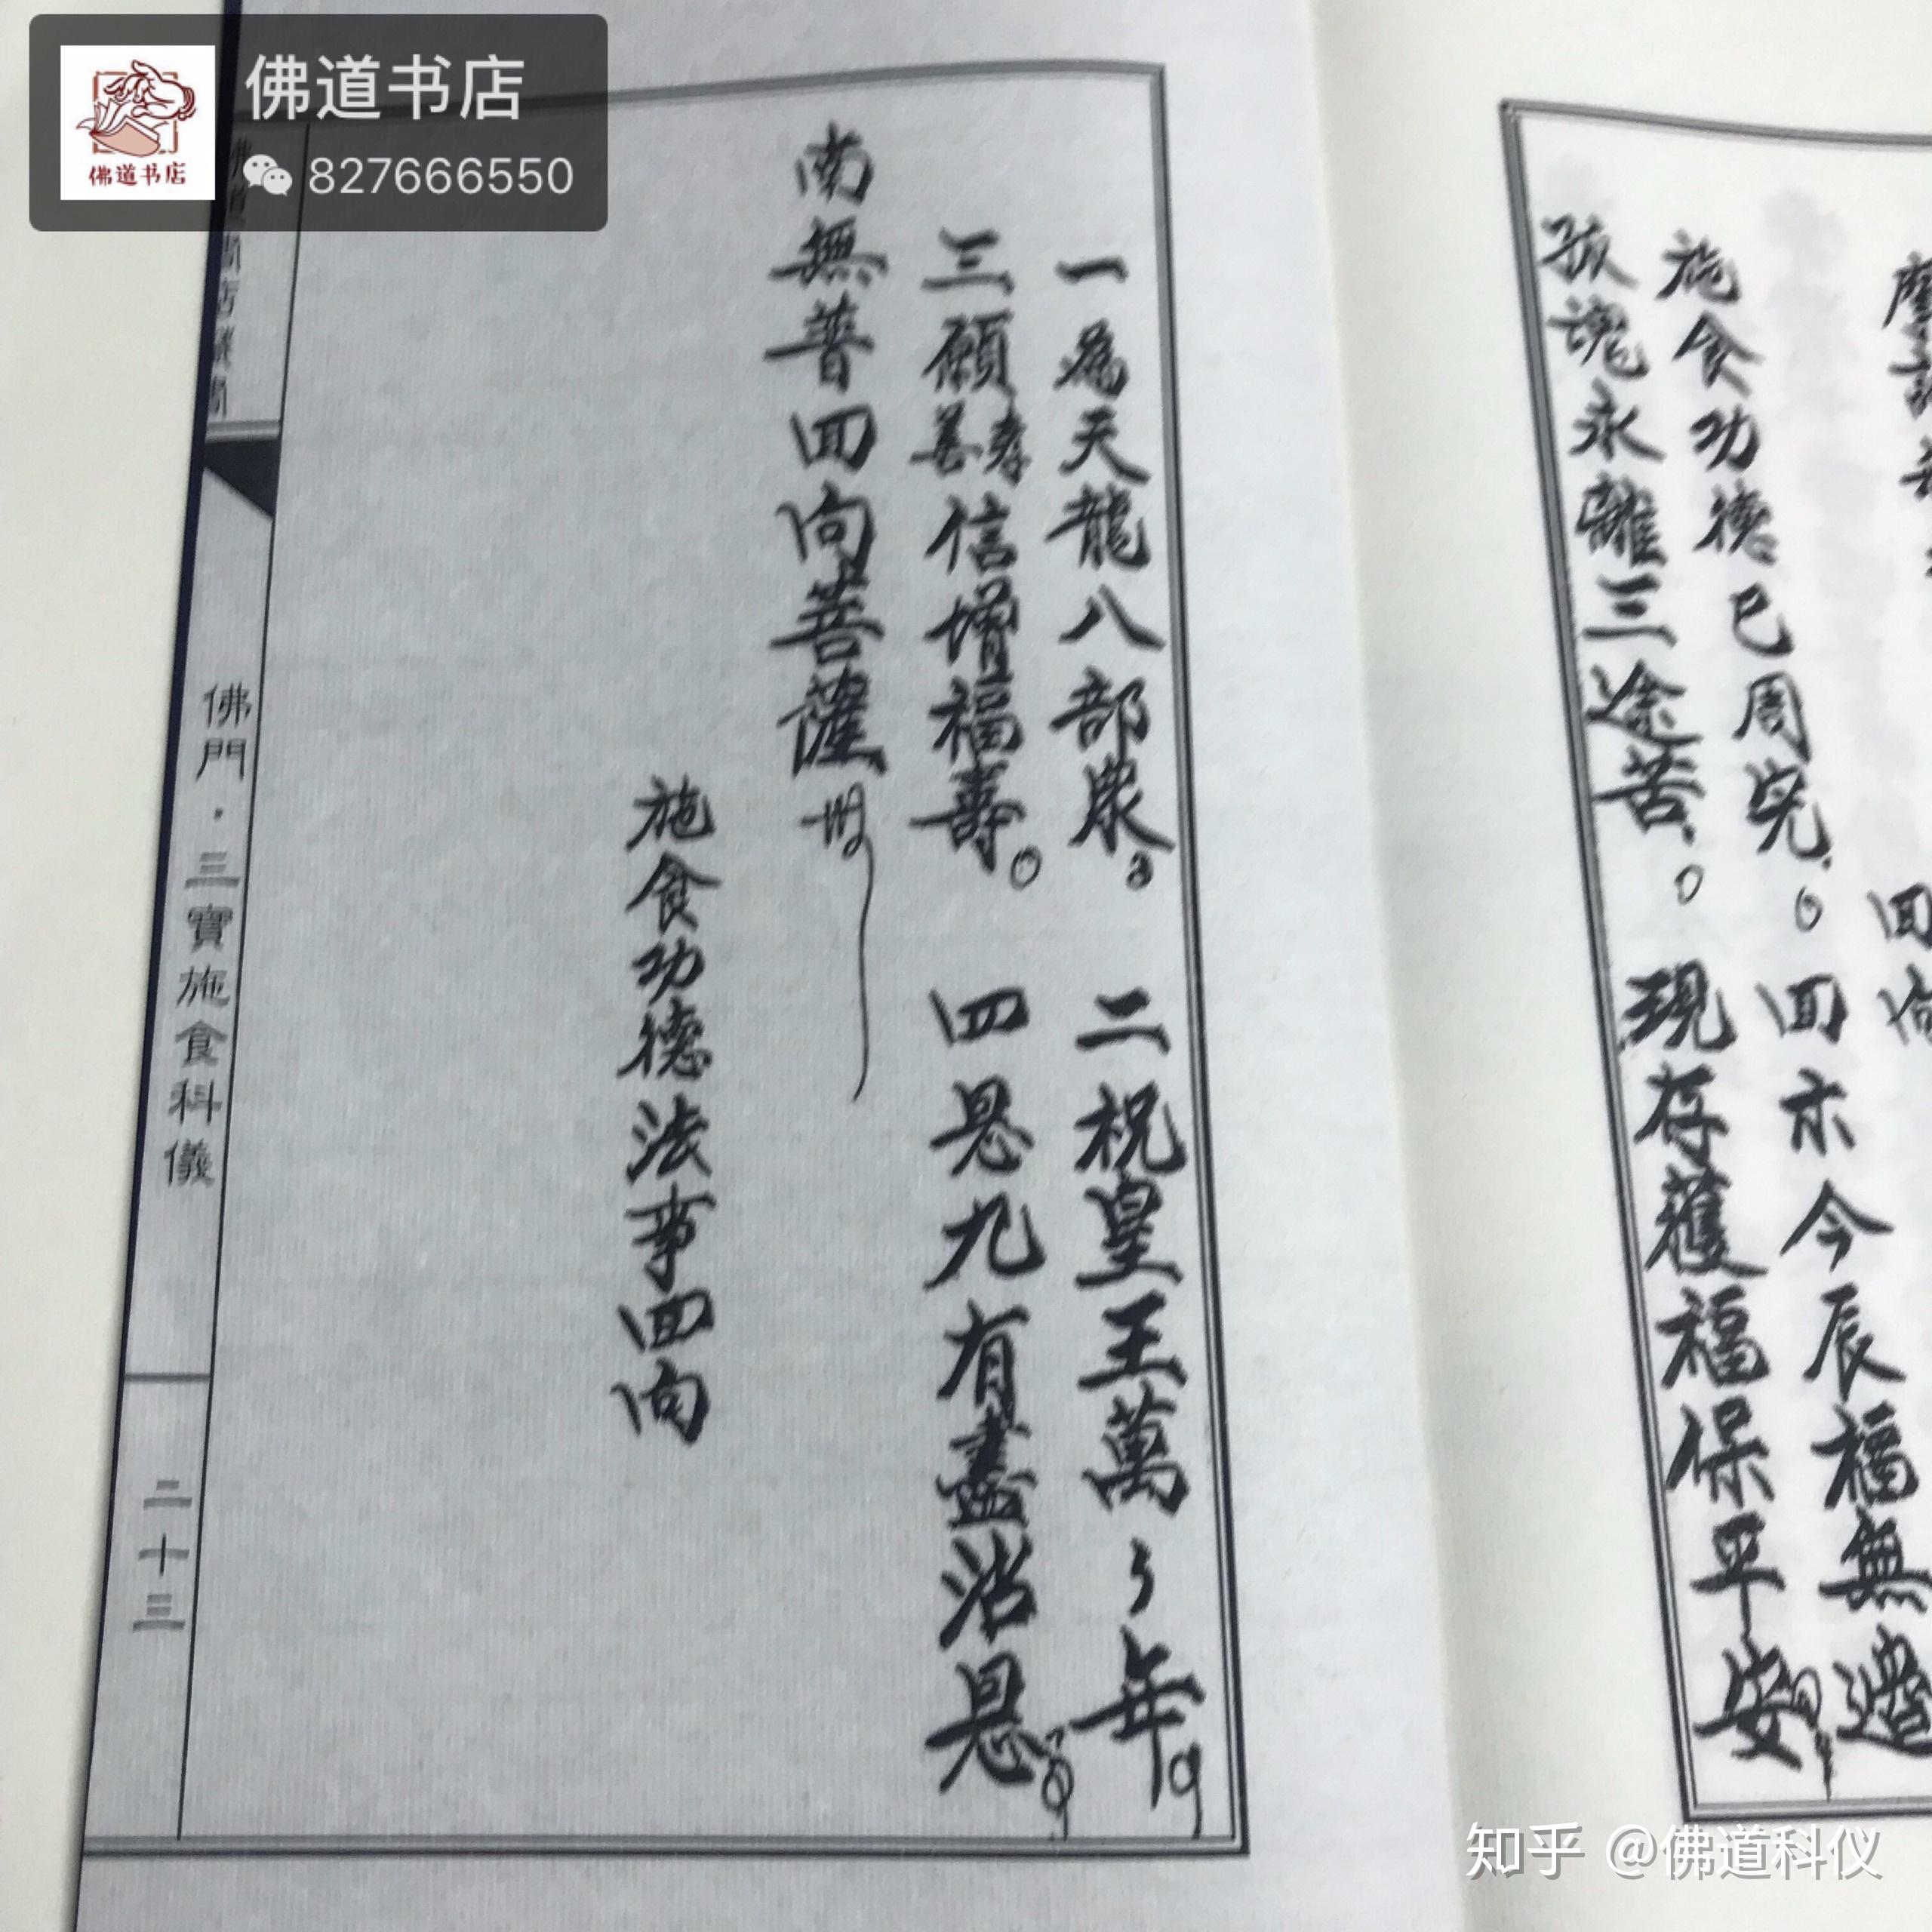 佛道书店
827666550
佛道书店
回向
施食功德已周完。回示今辰福無邊
孤魂永離三途苦。現存獲福保平安
一為天龍八部眾。二祝皇王萬々年
三願善孝信增福壽。四恩九有盡沾恩
南無普回向菩薩
施食功德法事回向
佛門·三寶施食科儀
二十三
知乎 @佛道科仪